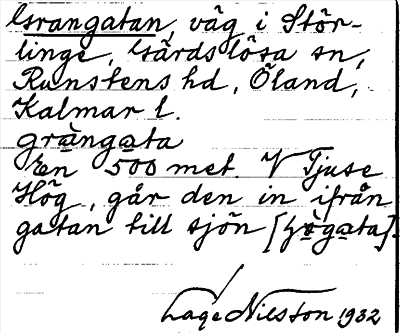 Grangatan, väg i Stör-
linge, Gärdslösa sn,
Runstens hd, Öland,
Kalmar l.
gràngata
En 500 met. V Tjuse
Hög, går den in ifrån
gatan till sjön [ògata].
Lage Nilsson 1932